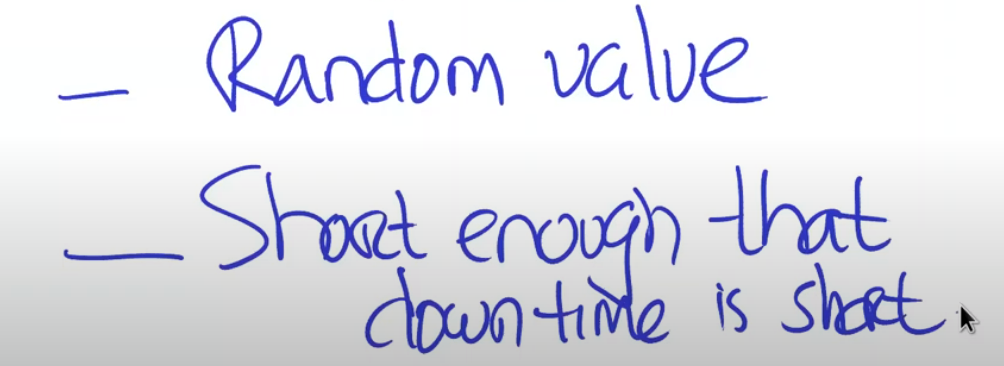 — Random value
— Short enough that
downtime is short.